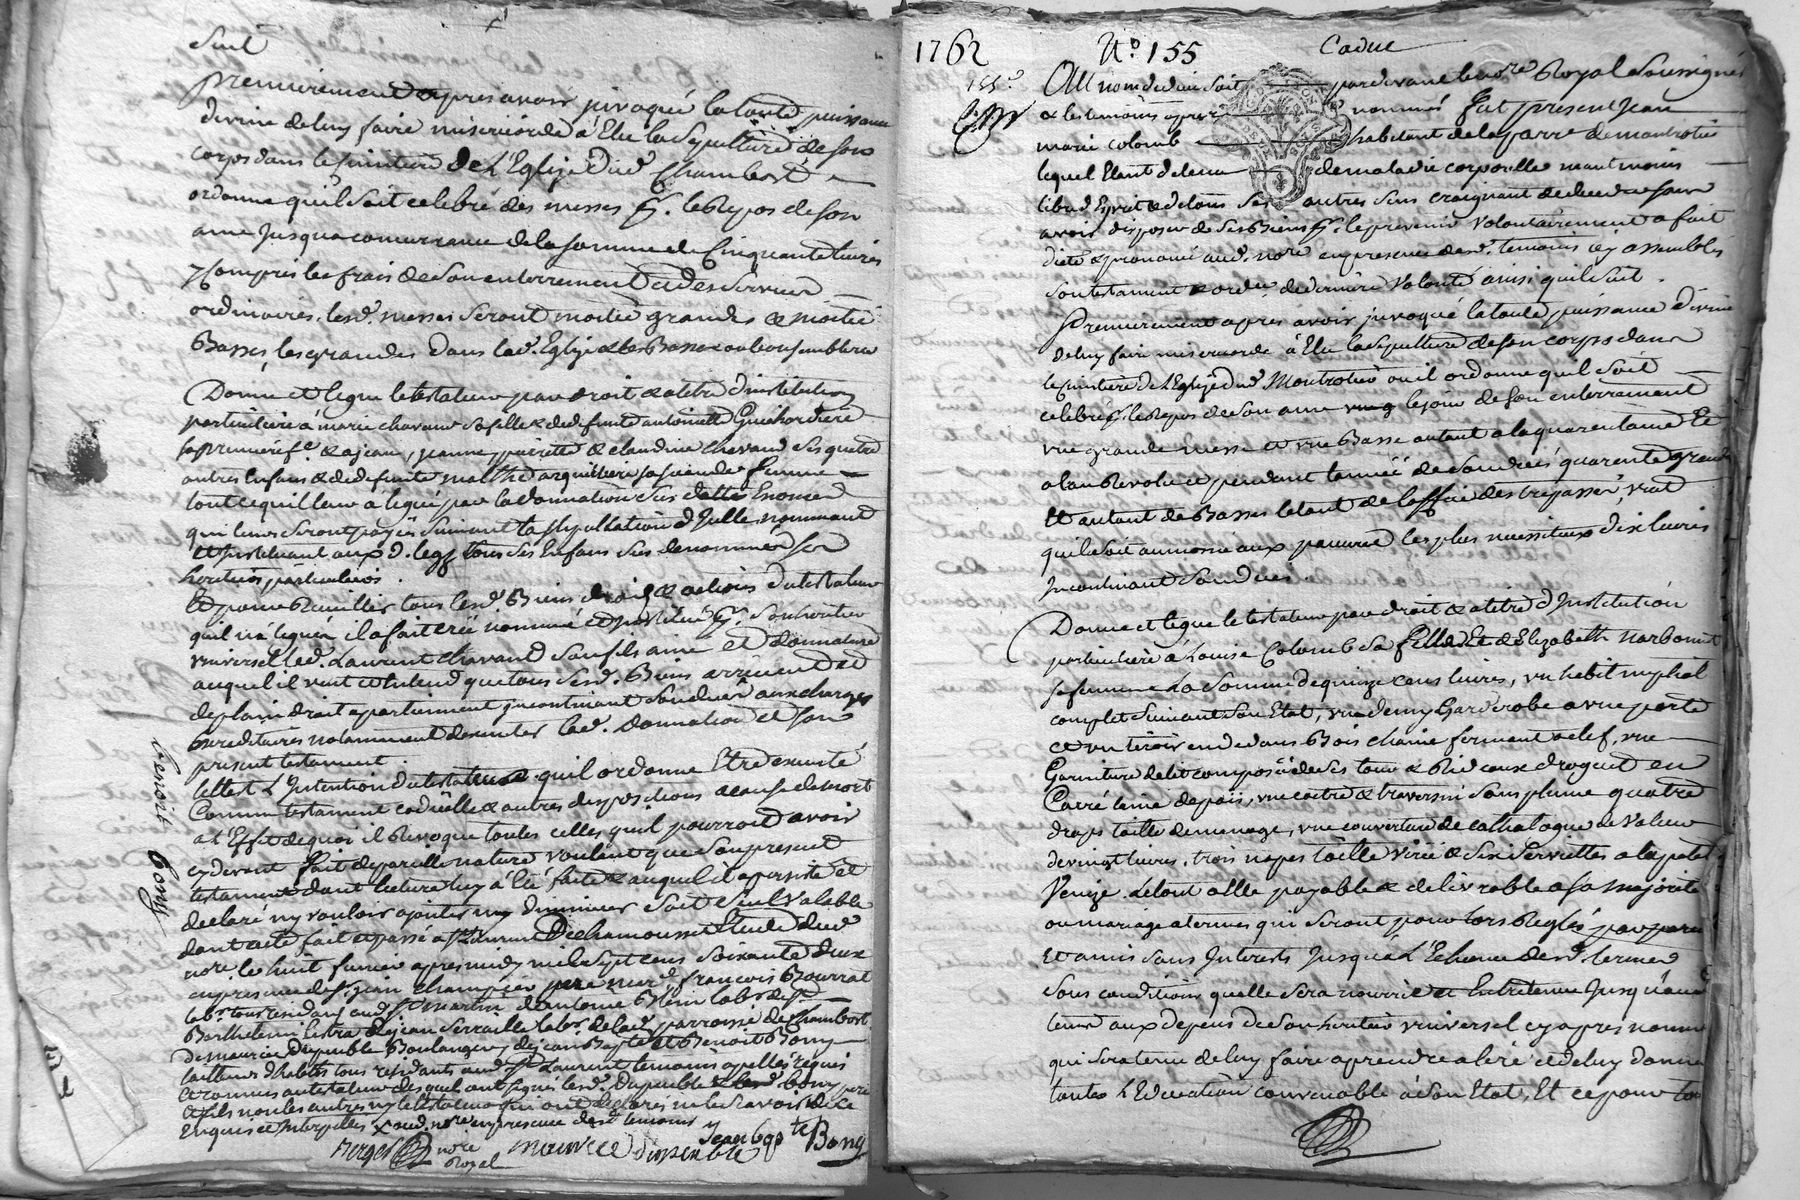 Suit
premierement apres avoir invoqué la toute puissance
divine de luy faire misericorde à Elu la Sepulture de son
corps dans le Cimitiere de L'Eglize dud. Chambost
ordonne qu'il soit celebré des messes pr. le Repos de son
ame Jusqua concurrance de la somme de Cinquante livres
y Compris les frais de son enterrement et des services
ordinaires. lesd. messes seront moitié grandes & moitié
Basses les grandes dans lad. Eglize & les Basses ou bon semblera
Donne et legue le testateur par droit & a titre d'institution
particuliere à marie chavand sa fille & de defunte antoinette Guichardiere
sa premiere fe. & a jean, jeanne, pierrette & claudine chavand ses quatre
autres Enfans & de defunte marthe arquilliere sa seconde femme
tout ce qu'il leur à legué par la donnation sus datté Enoncée
qui leurs seront payés suivant la stipullation d'Jcelle nommant
et Instituant aux d. legs tous ses Enfans sus denommés ses
heritiers particuliers.
Et pour Receuillir tous lesd. Biens droits & actions du testateur
qu'il n'a legués il a fait créé nommé et Institué pr. son heritier
universel led. Laurent chavand son fils ainé et donnataire
auquel il veut et entend que tous sesd. Biens arrivent et
de plein droit apartiennent incontinant son decés aux charges
hereditaires notamment d'executer lad. Donnation et son
present testament.
telle est L'Intention du testateur qu'il ordonne Etre executé
Comme testament codicille & autres dispositions a cause de mort
a L'Effet de quoi il Revoque toutes celles qu'il pourroit avoir
cy devant fait de pareille nature voulant que son present
testament dont lecture luy à été faite & auquel il a persisté et
declaré n'y vouloir ajouter ny diminuer soit seul valable
dont acte fait et passé a St. Laurent De chamousset Etude dud.
nore. le huit fevrier apres midy mil sept cens soixante deux
en presence de sr. jean champier pere mard. françois Bourrat
labr. tous residans aud. St. martin d'antoine Blein labr. de
Barthelemi Lestra de jean serraille labr. de lad. parroisse de Chambost
de maurice Dupuble Boulanger, de jean Bapte. et Benoit Bony
tailleurs d'habits tous residants aud. St. Laurent temoins apellés requis
et connus au testateur desquels ont signés lesd. Dupuble & lesd. bony pere
et fils non les autres ny le testateur qui ont declarés ne le scavoir de ce
Enquis et Interpellés par led. nore. en presence desd. temoins
Benoit bony
nore
Royal
maurice dupuble
jean bapte Bony
1762
No. 155
Caduc
155e.
Au nom de dieu soit par devant le nore. Royal soussigné
& les temoins apres nommés fut present Jean
marie colomb habitant de la parre. de montrotier
lequel Etant detenu de maladie corporelle neantmoins
libre d'Esprit & de tous ses autres sens craignant de deceder sans
avoir disposer de ses Biens pr. le prevenir volontairement a fait
dicté & prononcé aud. nore. en presence desd. temoins icy assemblés
son testament & ordre de derniere volonté ainsi qu'il suit.
Premierement apres avoir invoqué la toute puissance divine
de luy faire misericorde à Elu la sepulture de son corps dans
le cimitiere de L'Eglize dud. Montrotier ou il ordonne qu'il soit
celebré pr. le Repos de son ame le jour de son enterrement
une grande messe et une Basse autant a la quarentaine Et
a l'an Revolu et pendant l'année de son decés quarente grandes
Et autant de Basses le tout de l'office des trepassés veut
qu'il soit aumoné aux pauvres les plus necessiteux dix livres
Incontinant son decés.
Donne et legue le testateur par droit & a titre d'Institution
particuliere à Louise Colomb sa fille Et de Elizabeth narbonnet
sa femme La somme de quinze cens livres, un habit nuptial
complet suivant son Etat, un demy Garderobe a une porte
et un tiroir en dedans Bois chaine fermant a clef, une
Garniture de lit composée de ses tour & Rideaux droguet en
Carré teint de pois, une coitre & traversin sans plume quatre
draps toille de menage, une couverture de cathalogne de valeur
de vingt livres. trois napes toille virée & six serviettes a la petite
Venize. le tout a elle payable & delivrable a sa majorité
ou mariage a termes qui seront pour lors Reglés par parens
Et amis sans Interests Jusqu'à L'Echeance desd. termes
sous conditions qu'elle sera nourrie et Entretenue Jusqu'aud.
tems aux depens de son heritier universel cy apres nommé
qui sera tenu de luy faire aprendre a lire et de luy donner
toutes L'Education convenable à son Etat, Et ce pour tous